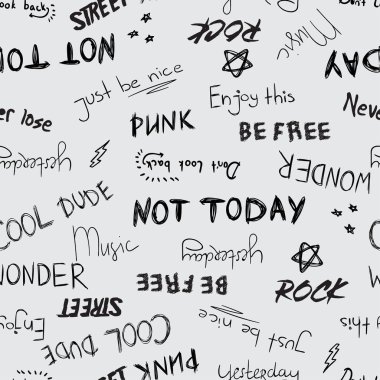 Look back
STREET
ROCK
Music
Don't
NOT TODAY
just be nice
DAY
Enjoy this
Never
er lose
PUNK
BE FREE
yesterday
Don't Look back
WONDER
COOL DUDE
NOT TODAY
Music
yesterday
WONDER
BE FREE
ROCK
STREET
Enjoy
COOL DUDE
just be nice
y this
PUNK
Yesterday